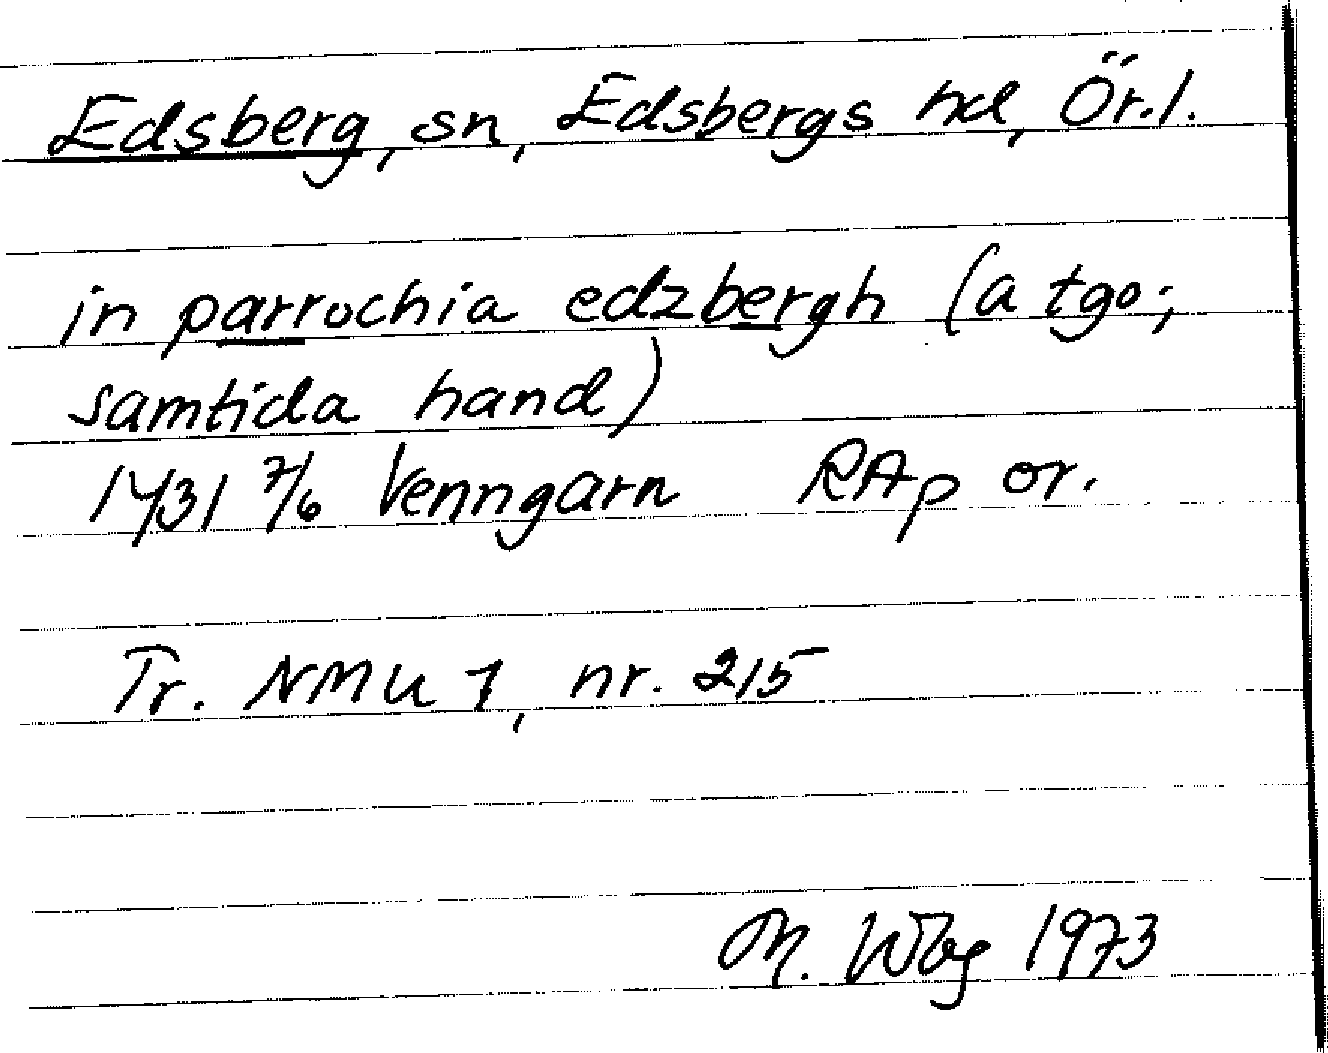 Edsberg, sn, Edsbergs hd, Ör.l.
in parrochia edzbergh (a tgo;
samtida hand)
1431 7/6 Venngarn RAp or.
Tr. NMU 1, nr. 215
M. Wbg 1973